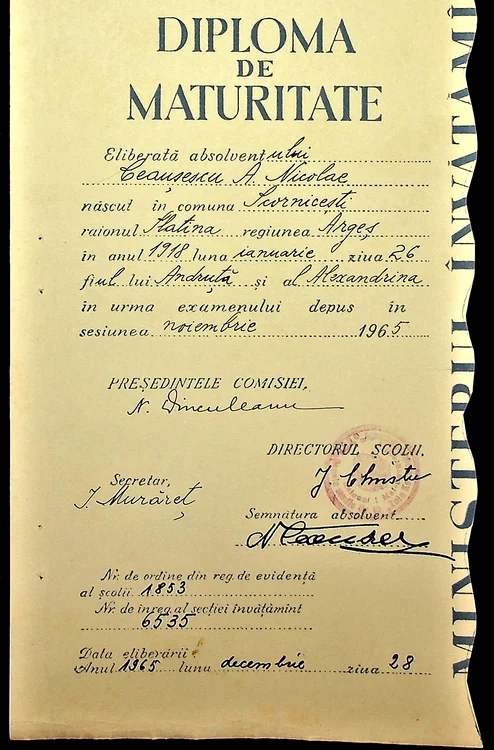 DIPLOMA
DE
MATURITATE
Eliberată absolventului
Ceaușescu A. Nicolae
născut în comuna Scornicești
raionul Slatina regiunea Argeș
în anul 1918 luna ianuarie ziua 26
fiul lui Andruță și al Alexandrina
în urma examenului depus în
sesiunea noiembrie 1965
PREȘEDINTELE COMISIEI,
N. Dinculeanu
DIRECTORUL ȘCOLII,
Secretar,
I. Murăreț
Semnătura absolvent
Nr. de ordine din reg. de evidență
al școlii 1853
Nr. de înreg. al secției învățămînt
6535
Data eliberării:
Anul 1965 luna decembrie ziua 28
MINISTERUL ÎNVĂȚĂMÎ